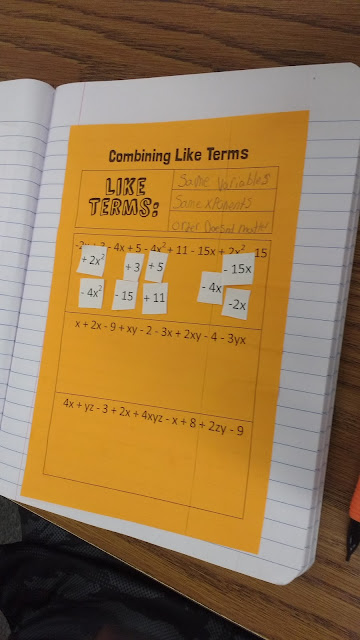 Combining Like Terms
LIKE
TERMS:
Same Variables
Same xponents
order Doesnt matter
- 4x + 5 - 4x² + 11 - 15x + 2x² 15
+ 2x²
+ 3
+ 5
- 15x
- 4x²
- 15
+ 11
- 4x
-2x
x + 2x - 9 + xy - 2 - 3x + 2xy - 4 - 3yx
4x + yz - 3 + 2x + 4xyz - x + 8 + 2zy - 9